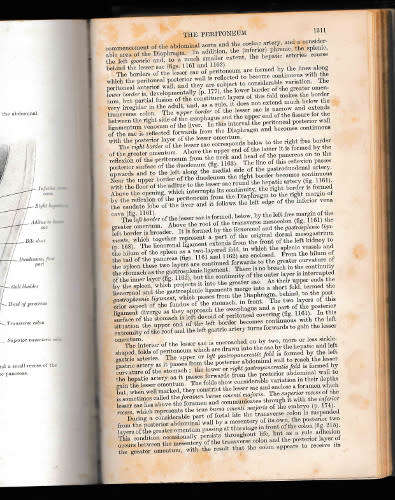 THE PERITONEUM 1311
commencement of the abdominal aorta and the coeliac artery, and a consider-
able area of the Diaphragm. In addition, the (inferior) phrenic, the splenic,
the left gastric and, to a much smaller extent, the hepatic arteries course
behind the lesser sac (figs. 1161 and 1163).
The borders of the lesser sac of peritoneum are formed by the lines along
which the peritoneal posterior wall is reflected to become continuous with the
peritoneal anterior wall, and they are subject to considerable variation. The
lower border is, developmentally (p. 177), the lower border of the greater omen-
tum, but partial fusion of the constituent layers of this fold makes the border
very irregular in the adult, and, as a rule, it does not extend much below the
transverse colon. The upper border of the lesser sac is narrow and extends
between the right side of the oesophagus and the upper end of the fissure for the
ligamentum venosum of the liver. In this interval the peritoneal posterior wall
of the sac is reflected forwards from the Diaphragm and becomes continuous
with the posterior layer of the lesser omentum.
The right border of the lesser sac corresponds below to the right free border
of the greater omentum. Above the upper end of the latter it is formed by the
reflection of the peritoneum from the neck and head of the pancreas on to the
posterior surface of the duodenum (fig. 1163). The line of this reflexion passes
upwards and to the left along the medial side of the gastroduodenal artery.
Near the upper border of the duodenum the right border becomes continuous
with the floor of the aditus to the lesser sac round the hepatic artery (fig. 1161).
Above the opening, which interrupts its continuity, the right border is formed
by the reflexion of the peritoneum from the Diaphragm to the right margin of
the caudate lobe of the liver and it follows the left edge of the inferior vena
cava (fig. 1161).
The left border of the lesser sac is formed, below, by the left free margin of the
greater omentum. Above the root of the transverse mesocolon (fig. 1161) the
left border is broader. It is formed by the lienorenal and the gastrosplenic liga-
ments, which together represent a part of the original dorsal mesogastrium
(p. 168). The lienorenal ligament extends from the front of the left kidney to
the hilum of the spleen as a two-layered fold, in which the splenic vessels and
the tail of the pancreas (figs. 1161 and 1162) are enclosed. From the hilum of
the spleen these two layers are continued forwards to the greater curvature of
the stomach as the gastrosplenic ligament. There is no breach in the continuity
of the inner layer (fig. 1162), but the continuity of the outer layer is interrupted
by the spleen, which projects it into the greater sac. At their upper ends the
lienorenal and the gastrosplenic ligaments merge into a short fold, termed the
gastrophrenic ligament, which passes from the Diaphragm, behind, to the pos-
terior aspect of the fundus of the stomach, in front. The two layers of this
ligament diverge as they approach the oesophagus and a part of the posterior
surface of the stomach is left devoid of peritoneal covering (fig. 1161). In this
situation the upper end of the left border becomes continuous with the left
extremity of the roof and the left gastric artery turns forwards to gain the lesser
omentum.
The interior of the lesser sac is encroached on by two, more or less sickle-
shaped, folds of peritoneum which are drawn into the sac by the hepatic and left
gastric arteries. The upper or left gastropancreatic fold is formed by the left
gastric artery as it passes from the posterior abdominal wall to reach the lesser
curvature of the stomach; the lower or right gastropancreatic fold is formed by
the hepatic artery as it passes forwards from the posterior abdominal wall to
gain the lesser omentum. The folds show considerable variation in their depths
but, when well marked, they constrict the lesser sac and enclose a foramen which
is sometimes called the foramen bursae omenti majoris. The superior recess of the
lesser sac lies above the foramen and communicates through it with the inferior
recess, which represents the true bursa omenti majoris of the embryo (p. 174).
During a considerable part of foetal life the transverse colon is suspended
from the posterior abdominal wall by a mesentery of its own, the posterior two
layers of the greater omentum passing at this stage in front of the colon (fig. 215).
This condition occasionally persists throughout life, but as a rule adhesion
occurs between the mesentery of the transverse colon and the posterior layer of
the greater omentum, with the result that the colon appears to receive its
the abdominal
Inferior vena
cava
Right suprarenal
Aditus to lesser
sac
Bile duct
Duodenum, first
Gall bladder
Head of pancreas
Transverse colon
Superior mesenteric vein